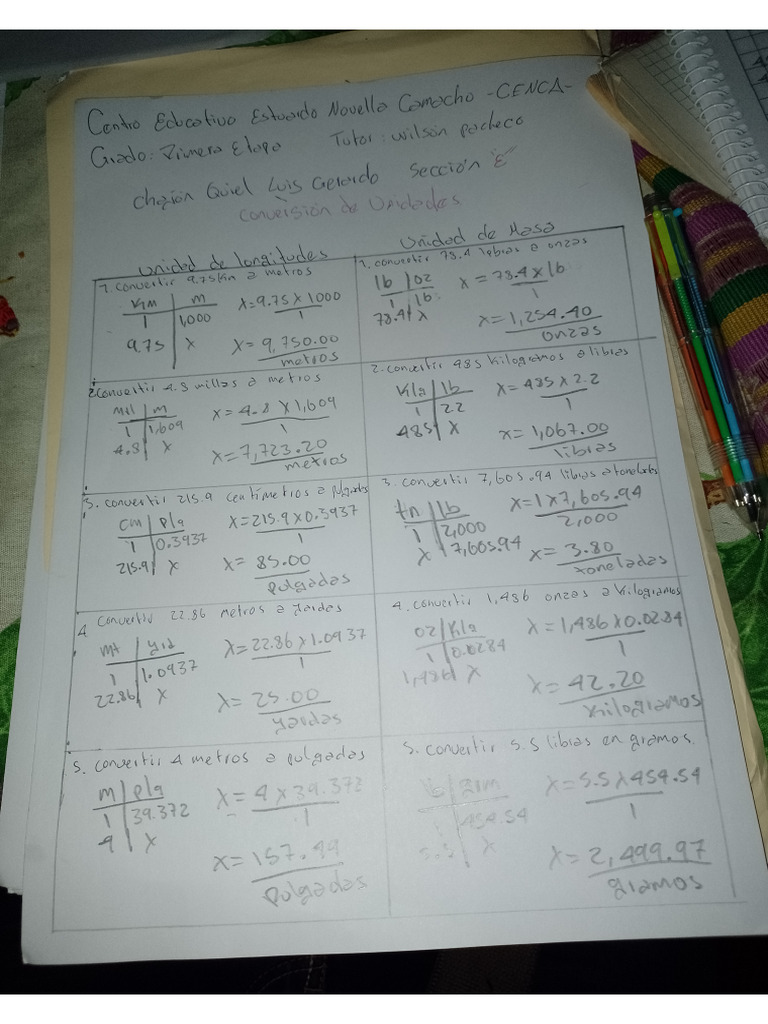 Centro Educativo Estuardo Novella Camacho -CENCA-
Grado: Primera Etapa Tutor: Wilson Pacheco
Chajón Quiel Luis Gerardo Sección "E"
Conversión de Unidades
Unidad de longitudes
1. convertir 9.75 km a metros
Km | m
1 | 1,000
9.75 | x
x = 9.75 x 1000
1
x = 9,750.00
metros
2. convertir 4.8 millas a metros
Mill | m
1 | 1,609
4.8 | x
x = 4.8 x 1,609
1
x = 7,723.20
metros
3. convertir 215.9 centímetros a pulgadas
cm | plg
1 | 0.3937
215.9 | x
x = 215.9 x 0.3937
1
x = 85.00
pulgadas
4 convertir 22.86 metros a yardas
mt | yrd
1 | 1.0937
22.86 | x
x = 22.86 x 1.0937
1
x = 25.00
yardas
5. convertir 4 metros a pulgadas
m | plg
1 | 39.372
4 | x
x = 4 x 39.372
1
x = 157.49
pulgadas
Unidad de Masa
1. convertir 78.4 libras a onzas
lb | oz
1 | 16
78.4 | x
x = 78.4 x 16
1
x = 1,254.40
onzas
2. convertir 485 kilogramos a libras
Klg | lb
1 | 2.2
485 | x
x = 485 x 2.2
1
x = 1,067.00
libras
3. convertir 7,605.94 libras a toneladas
tn | lb
1 | 2,000
x | 7,605.94
x = 1 x 7,605.94
2,000
x = 3.80
toneladas
4. convertir 1,486 onzas a kilogramos
oz | Klg
1 | 0.0284
1,486 | x
x = 1,486 x 0.0284
1
x = 42.20
kilogramos
5. convertir 5.5 libras en gramos.
lb | grm
1 | 454.54
5.5 | x
x = 5.5 x 454.54
1
x = 2,499.97
gramos